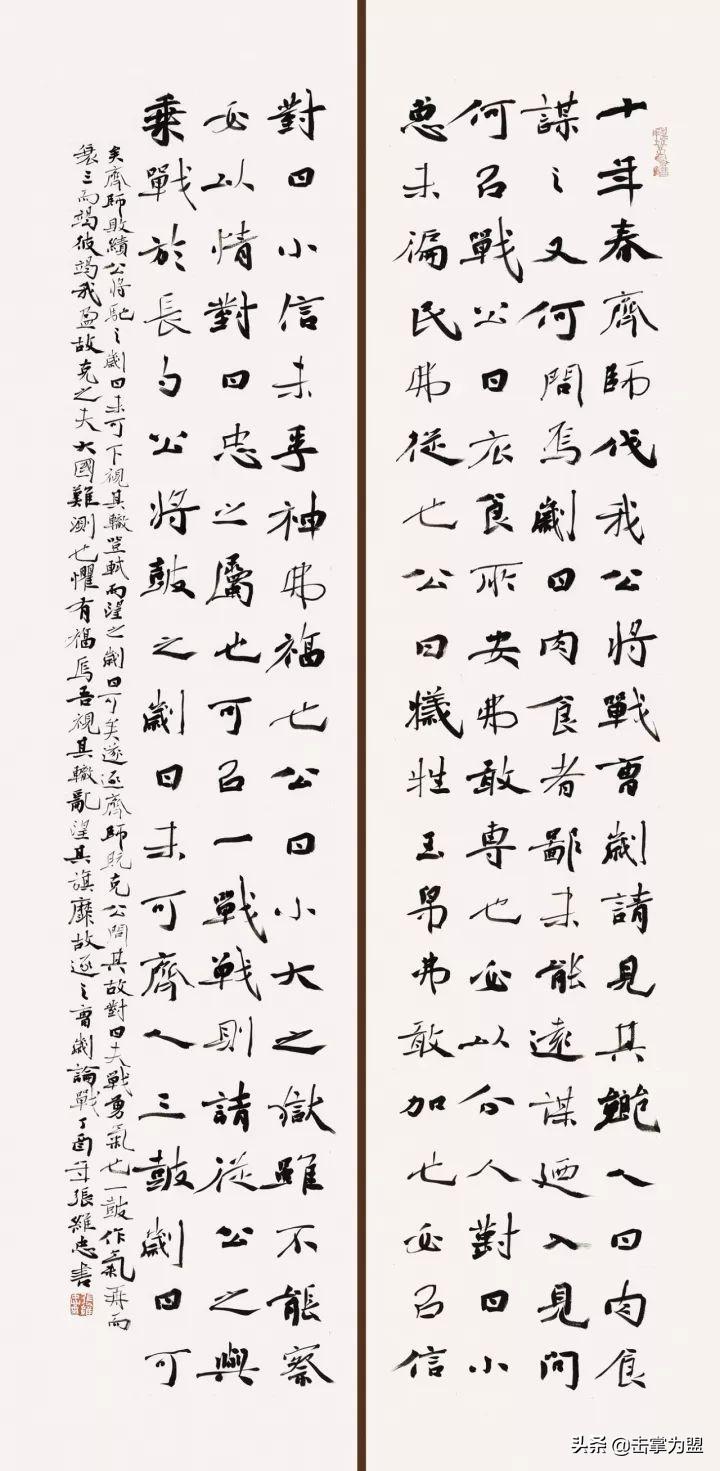 十年春齊師伐我公將戰曹劌請見其鄉人曰肉食
謀之又何間焉劌曰肉食者鄙未能遠謀廼入見問
何以戰公曰衣食所安弗敢專也必以分人對曰小
惠未徧民弗從也公曰犧牲玉帛弗敢加也必以信
對曰小信未孚神弗福也公曰小大之獄雖不能察
必以情對曰忠之屬也可以一戰戰則請從公之與
乘戰於長勺公將鼓之劌曰未可齊人三鼓劌曰可
矣齊師敗績公將馳之劌曰未可下視其轍登軾而望之劌曰可矣遂逐齊師既克公問其故對曰夫戰勇氣也一鼓作氣再而
衰三而竭彼竭我盈故克之夫大國難測也懼有福焉吾視其轍亂望其旗靡故逐之曹劌論戰丁酉年張維忠書
头条 @击掌为盟